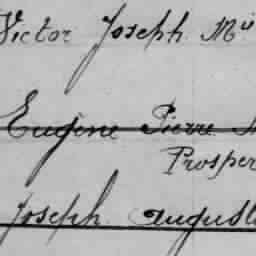 Victor Joseph
Eugène Pierre
Prosper
Joseph August